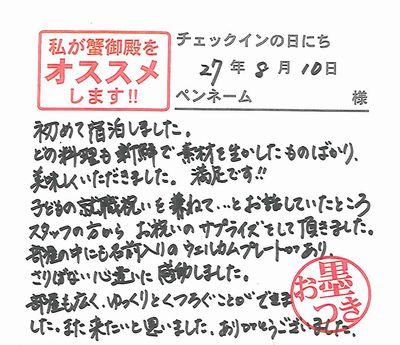 私が蟹御殿を
オススメ
します!!
チェックインの日にち
27年8月10日
ペンネーム 様
初めて宿泊しました。
どの料理も新鮮で素材を生かしたものばかり、
美味しくいただきました。満足です!!
子どもの就職祝いを兼ねて…とお話していたところ
スタッフの方からお祝いのサプライズをして頂きました。
部屋の中にも名前入りのウェルカムプレートがあり、
さりげない心遣いに感動しました。
部屋も広く、ゆっくりとくつろぐことができま
した。また来たいと思いました。ありがとうございました。
お墨つき